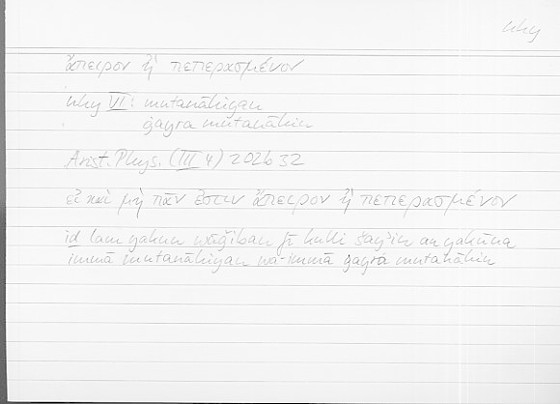 nhy
ἄπειρον ἢ πεπερασμένον
nhy VI: mutanāhiyan
ġayra mutanāhin
Arist. Phys. (III 4) 202b 32
εἰ καὶ μὴ πᾶν ἔστιν ἄπειρον ἢ πεπερασμένον
iḏ lam yakun wāǧiban fī kulli šayʾin an yakūna
immā mutanāhiyan wa-immā ġayra mutanāhin